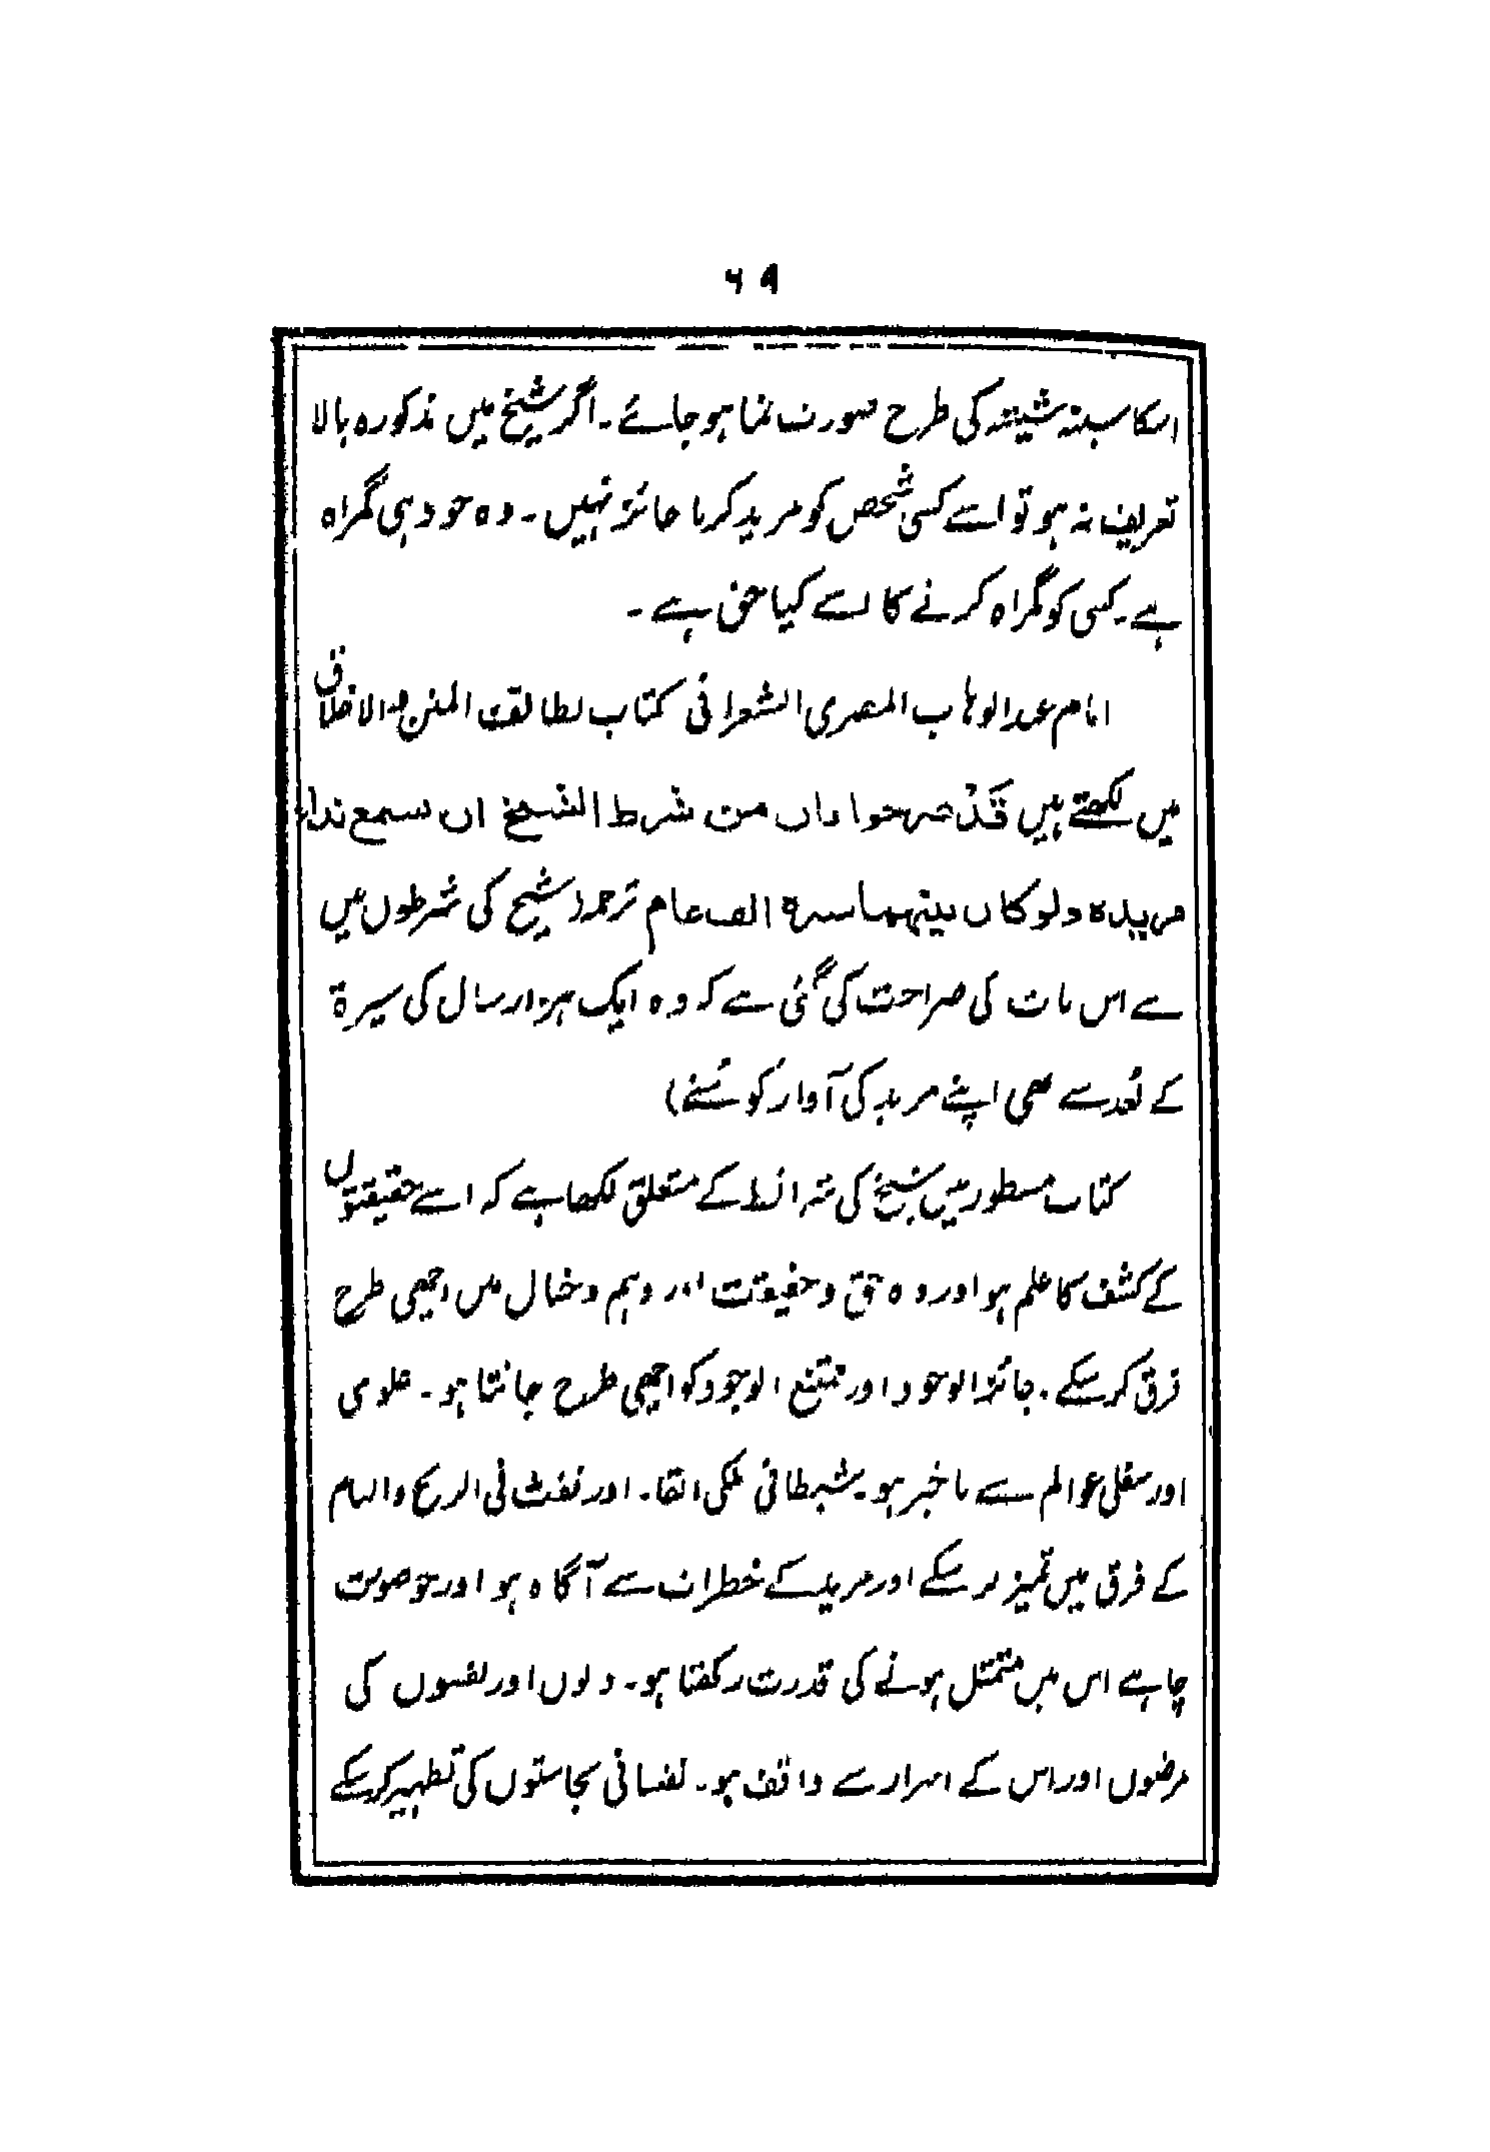 ۶۹
اسکا سینہ شیشہ کی طرح صورت نما ہو جائے۔ اگر شیخ میں مذکورہ بالا
تعریف نہ ہو تو اسے کسی شخص کو مرید کرنا جائز نہیں۔ وہ خود ہی گمراہ
ہے۔ کسی کو گمراہ کرنے کا اسے کیا حق ہے۔
امام عبدالوہاب المصری الشعرانی کتاب لطائف المنن والاخلاق
میں لکھتے ہیں قَدْ صرحوا بان من شرط الشیخ ان یسمع نداء
مریدہ ولو کان بینهما مسیرة الف عام ترجمہ (شیخ کی شرطوں میں
سے اس بات کی صراحت کی گئی ہے کہ وہ ایک ہزار سال کی سیرة
کے بُعد سے بھی اپنے مرید کی آواز کو سُنے)
کتاب مسطور میں شیخ کی شرائط کے متعلق لکھا ہے کہ اسے حقیقتوں
کے کشف کا علم ہو اور وہ حق و حقیقت اور وہم و خیال میں اچھی طرح
فرق کر سکے۔ جائز الوجود اور ممتنع الوجود کو اچھی طرح جانتا ہو۔ علوی
اور سفلی عوالم سے باخبر ہو۔ شیطانی ملکی القا۔ اور نفث فی الروع والہام
کے فرق میں تمیز کر سکے اور مرید کے خطرات سے آگاہ ہو اور جو صورت
چاہے اس میں متمثل ہونے کی قدرت رکھتا ہو۔ دلوں اور نفسوں کی
مرضوں اور اس کے اسرار سے واقف ہو۔ نفسانی نجاستوں کی تطہیر کر سکے